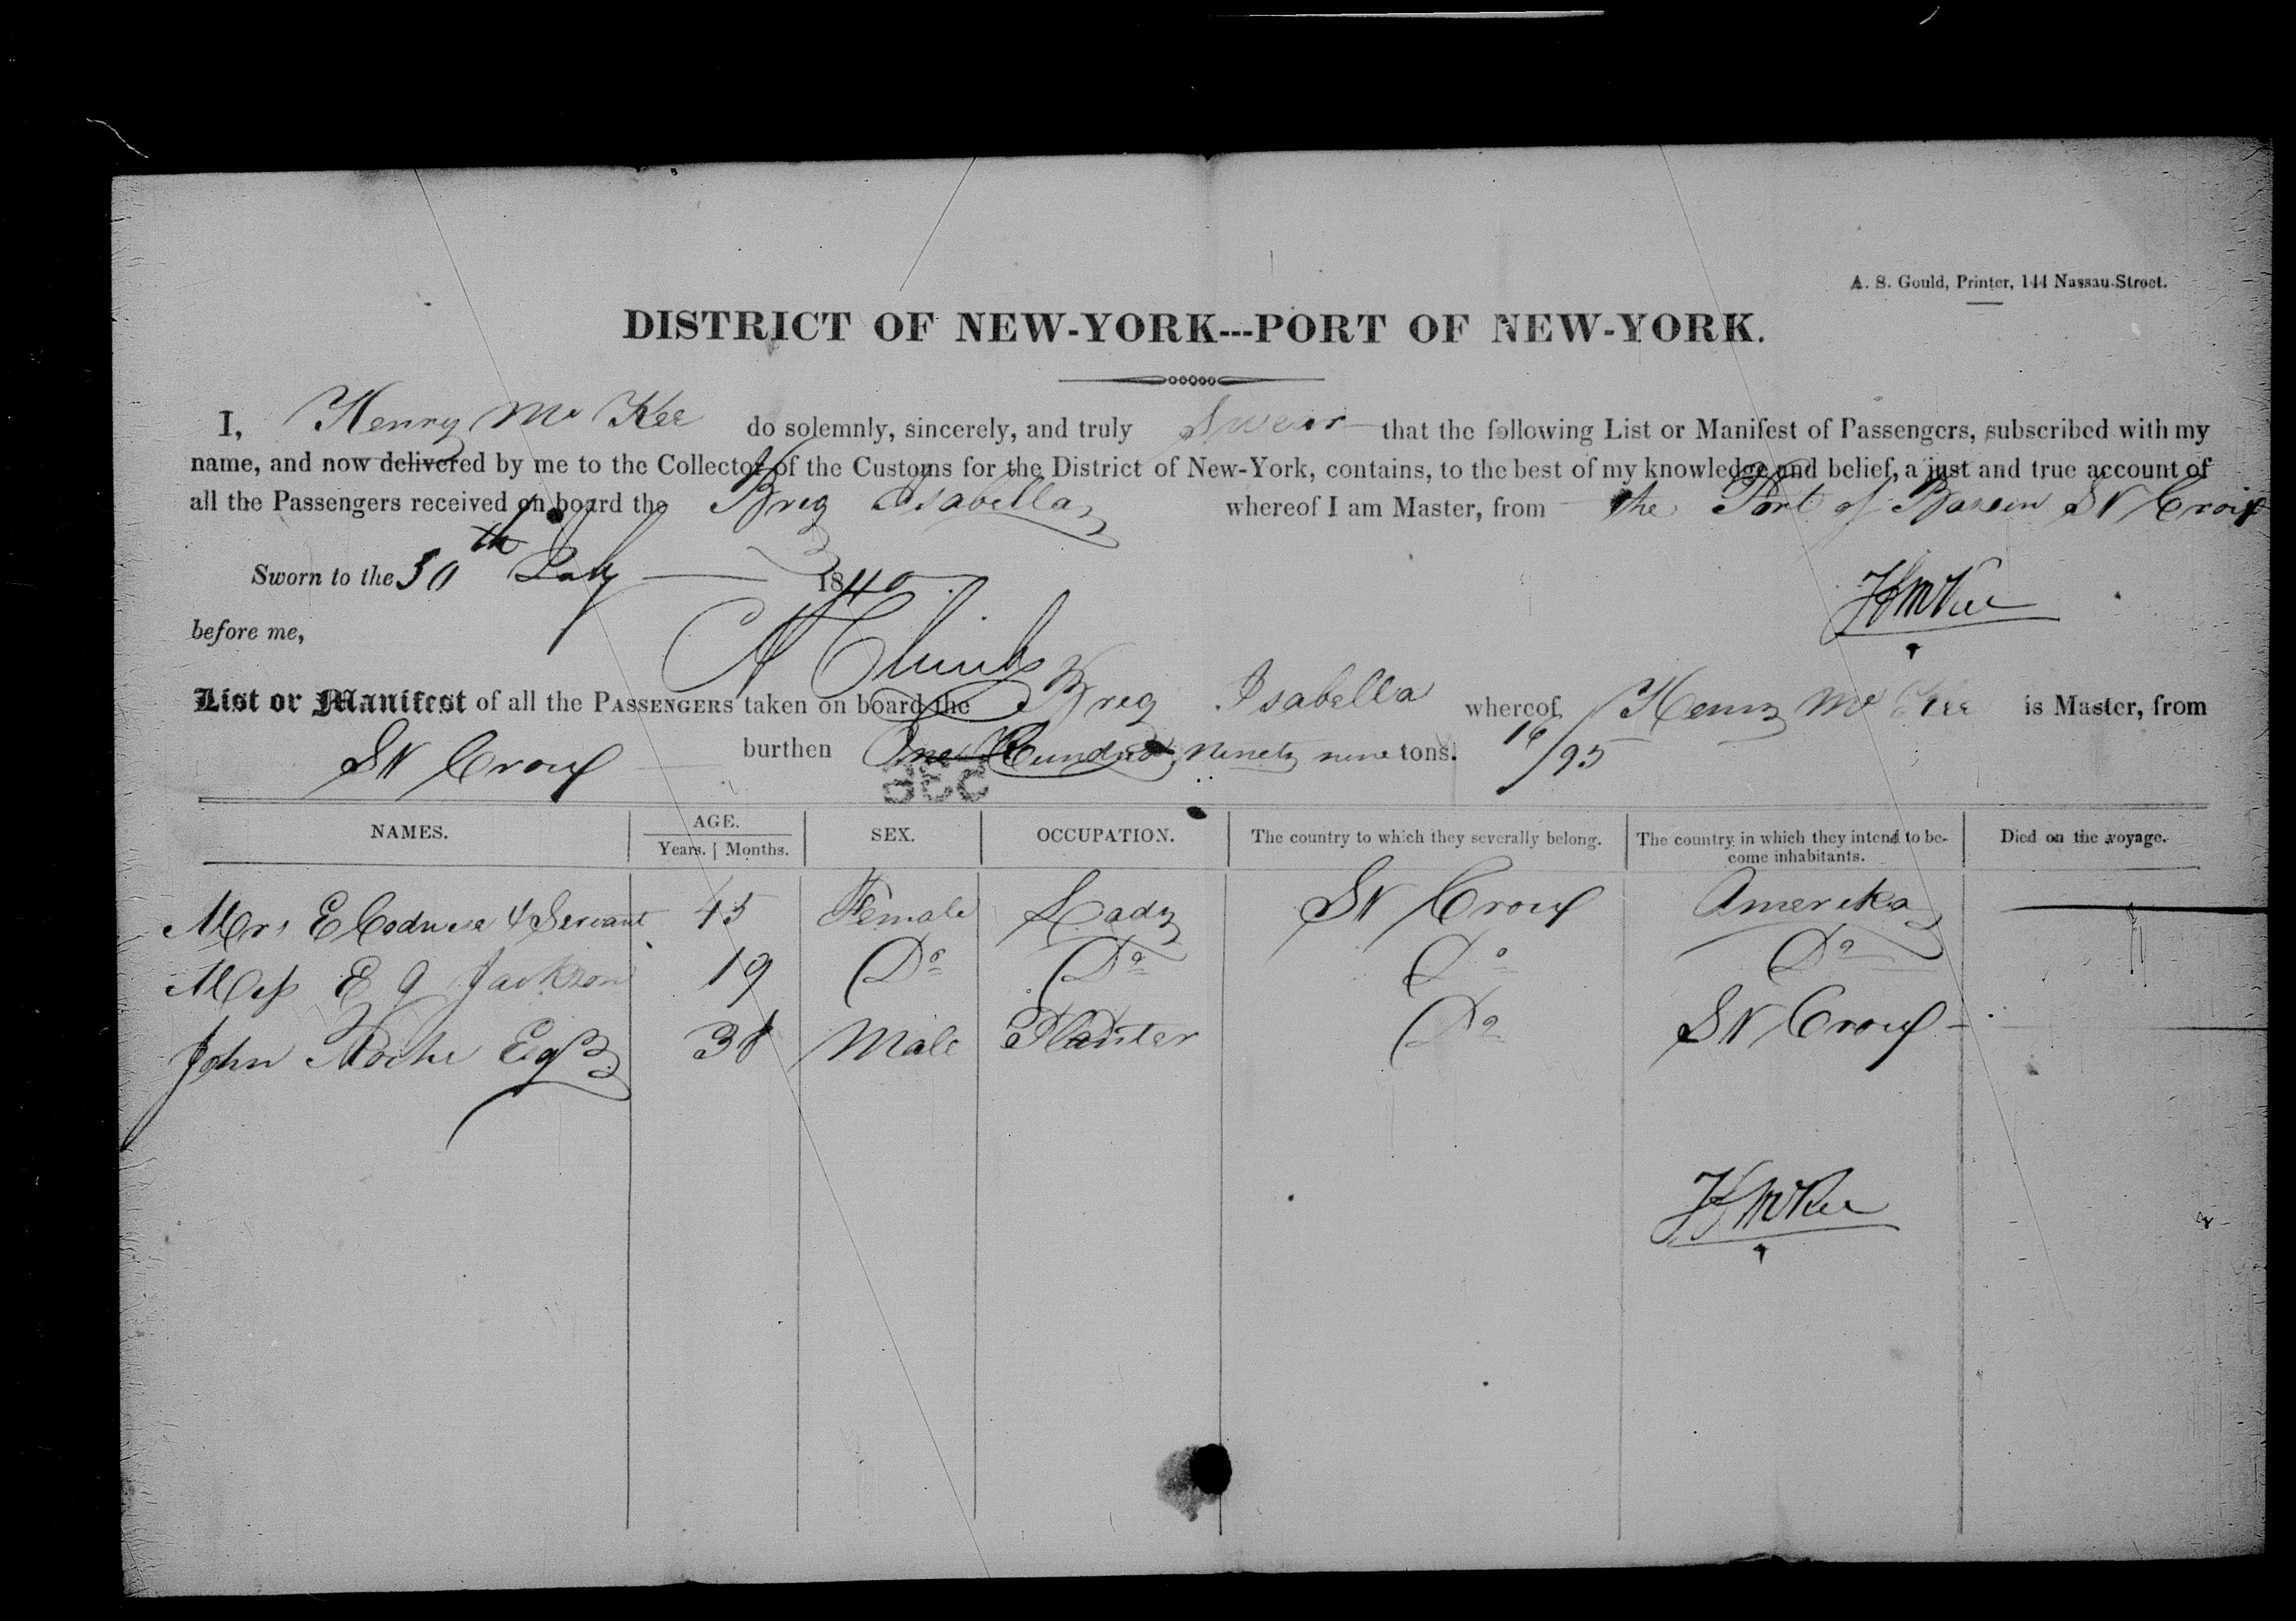 A. S. Gould, Printer, 144 Nassau-Street.
DISTRICT OF NEW-YORK---PORT OF NEW-YORK.
I, Henry Mc Kee do solemnly, sincerely, and truly Swear that the following List or Manifest of Passengers, subscribed with my
name, and now delivered by me to the Collector of the Customs for the District of New-York, contains, to the best of my knowledge and belief, a just and true account of
all the Passengers received on board the Breg Isabella whereof I am Master, from the Port of Bassin St Croix
Sworn to the 30th July 1840
before me,
H McKee
List or Manifest of all the PASSENGERS taken on board the Breg Isabella whereof Henry Mc Kee is Master, from
St Croix burthen One Hundred Ninety nine tons. 16/95
NAMES. AGE. SEX. OCCUPATION. The country to which they severally belong. The country in which they intend to be- Died on the voyage.
Years. Months. come inhabitants.
Mrs E Codwise & Servant 45 Female Lady St Croix Amereka
Miss E G Jackson 19 Do Do Do Do
John Esqr 38 Male Planter Do St Croix
H McKee